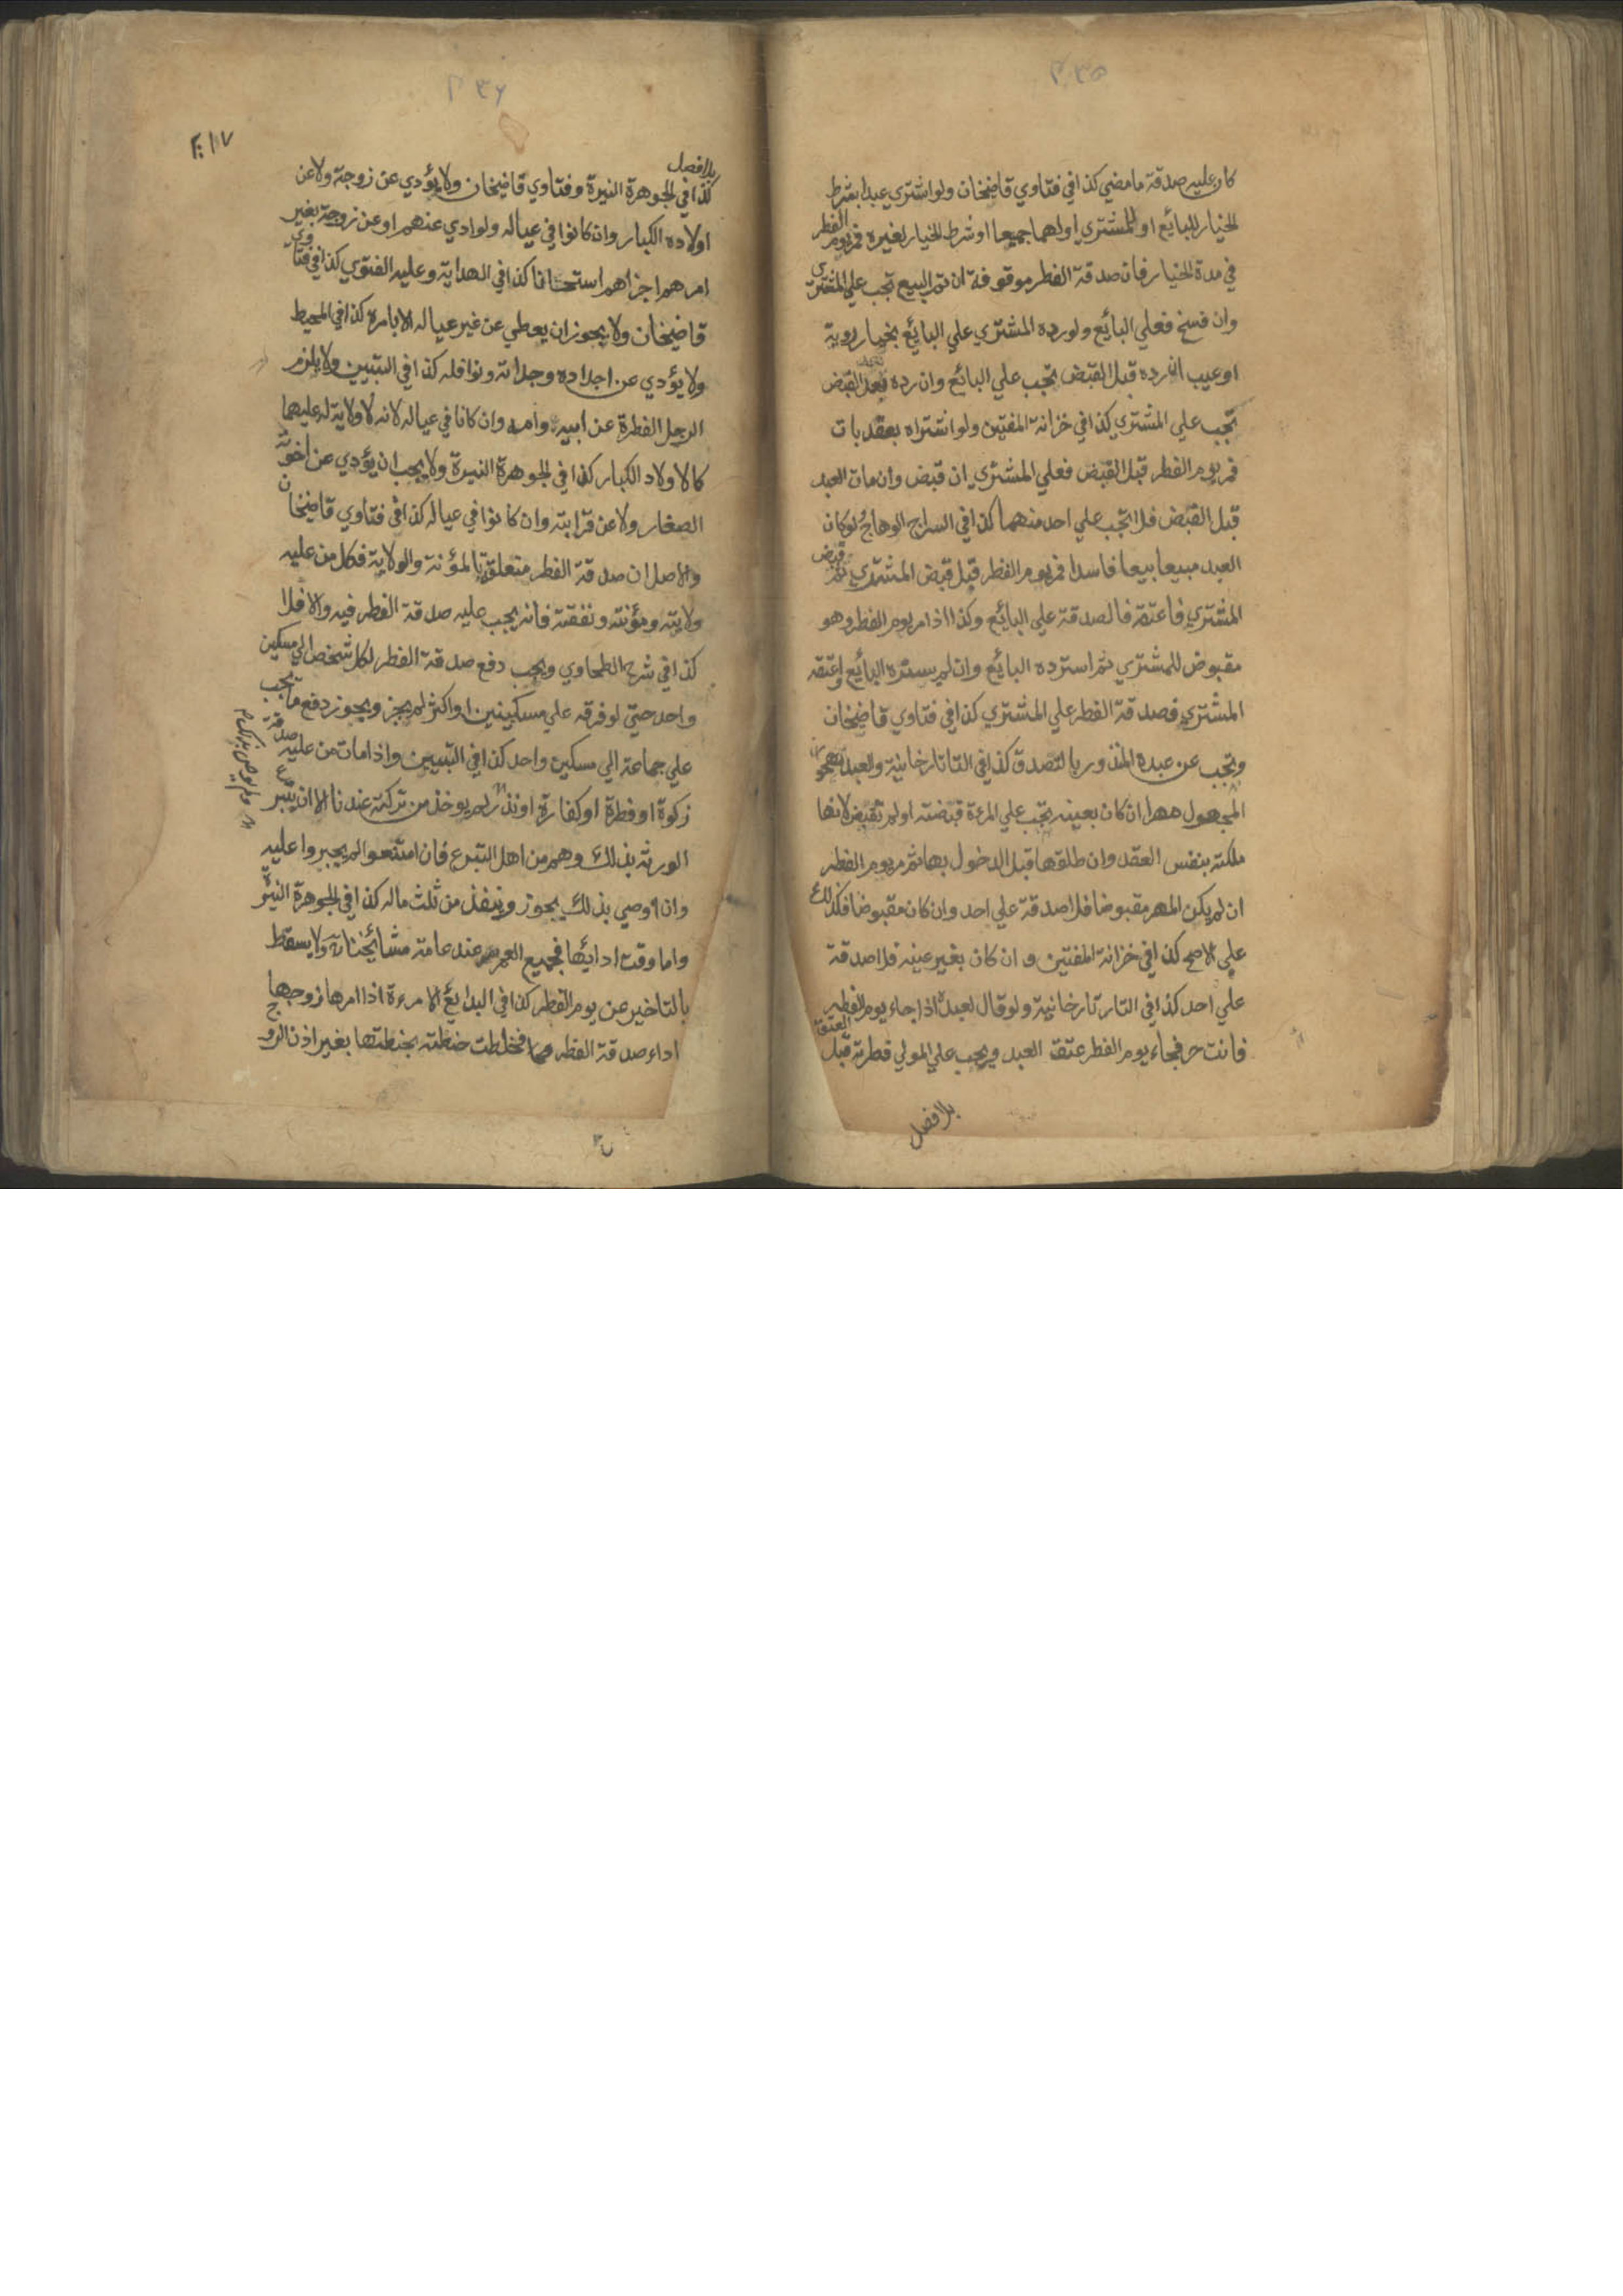 ٢٣٥
كان عليه صدقة ما مضي كذا في فتاوي قاضيخان ولو اشتري عبدا بشرط
الخيار للبائع او للمشتري او لهما جميعا او شرط الخيار لغيره فمر يوم الفطر
في مدة الخيار فان صدقة الفطر موقوفة ان تم البيع تجب علي المشتري
وان فسخ فعلي البائع ولو رده المشتري علي البائع بخيار روية
او عيب ان رده قبل القبض تجب علي البائع وان رده بعد القبض
تجب علي المشتري كذا في خزانة المفتين ولو اشتراه بعقد بات
فمر يوم الفطر قبل القبض فعلي المشتري ان قبض وان مات العبد
قبل القبض فلا تجب علي احد منهما كذا في السراج الوهاج لو كان
العبد مبيعا بيعا فاسدا فمر يوم الفطر قبل قبض المشتري ثم قبض
المشتري فاعتقه فالصدقة علي البائع وكذا اذا مر يوم الفطر وهو
مقبوض للمشتري ثم استرده البائع وان لم يسترده البائع واعتقه
المشتري فصدقة الفطر علي المشتري كذا في فتاوي قاضيخان
وتجب عن عبده المنذور بالتصدق كذا في التاتارخانية والعبد
المجهول مهرا ان كان بعينه تجب علي المرءة قبضته او لم تقبض لانها
ملكته بنفس العقد وان طلقها قبل الدخول بها ثم مر يوم الفطر
ان لم يكن المهر مقبوضا فلا صدقة علي احد وان كان مقبوضا فكذلك
علي الاصح كذا في خزانة المفتين و ان كان بغير عينه فلا صدقة
علي احد كذا في التارتارخانية ولو قال لعبده اذا جاء يوم الفطر
فانت حر فجاء يوم الفطر عتق العبد ويجب علي المولي فطرته قبل العتق
بلا فصل
٢٣٦
٢١٧
بلا فصل
كذا في الجوهرة النيرة وفتاوي قاضيخان ولا يؤدي عن زوجته ولا عن
اولاده الكبار وان كانوا في عياله ولو ادي عنهم او عن زوجته بغير
امرهم اجزاهم استحسانا كذا في الهداية وعليه الفتوي كذا في فتاوي
قاضيخان ولا يجوز ان يعطي عن غير عياله الا بامره كذا في المحيط
ولا يؤدي عن اجداده وجداته ونوافله كذا في التبيين ولا يلزم
الرجل الفطرة عن ابيه وامه وان كانا في عياله لانه لا ولاية له عليهما
كالاولاد الكبار كذا في الجوهرة النيرة ولا يجب ان يؤدي عن اخوته
الصغار ولا عن قرابته وان كانوا في عياله كذا في فتاوي قاضيخان
والاصل ان صدقة الفطر متعلقة بالمؤنة والولاية فكل من عليه
ولايته ومؤنته ونفقته فانه يجب عليه صدقة الفطر فيه والا فلا
كذا في شرح الطحاوي ويجب دفع صدقة الفطر لكل شخص الي مسكين
واحد حتي لو فرقه علي مسكينين او اكثر لم يجز ويجوز دفع ما يجب
علي جماعة الي مسكين واحد كذا في التبيين واذا مات من عليه صدقة
زكوة او فطرة او كفارة او نذر لم يوخذ من تركته عندنا الا ان يتبرع
الورثة بذلك وهم من اهل التبرع فان امتنعوا لم يجبروا عليه
وان اوصي بذلك يجوز وينفذ من ثلث ماله كذا في الجوهرة النيرة
واما وقت ادائها فجميع العمر عند عامة مشائخنا ولا يسقط
بالتاخير عن يوم الفطر كذا في البدائع الامرءة اذا امرها زوجها
اداء صدقة الفطر فخلطت حنطته بحنطتها بغير اذن الزوج